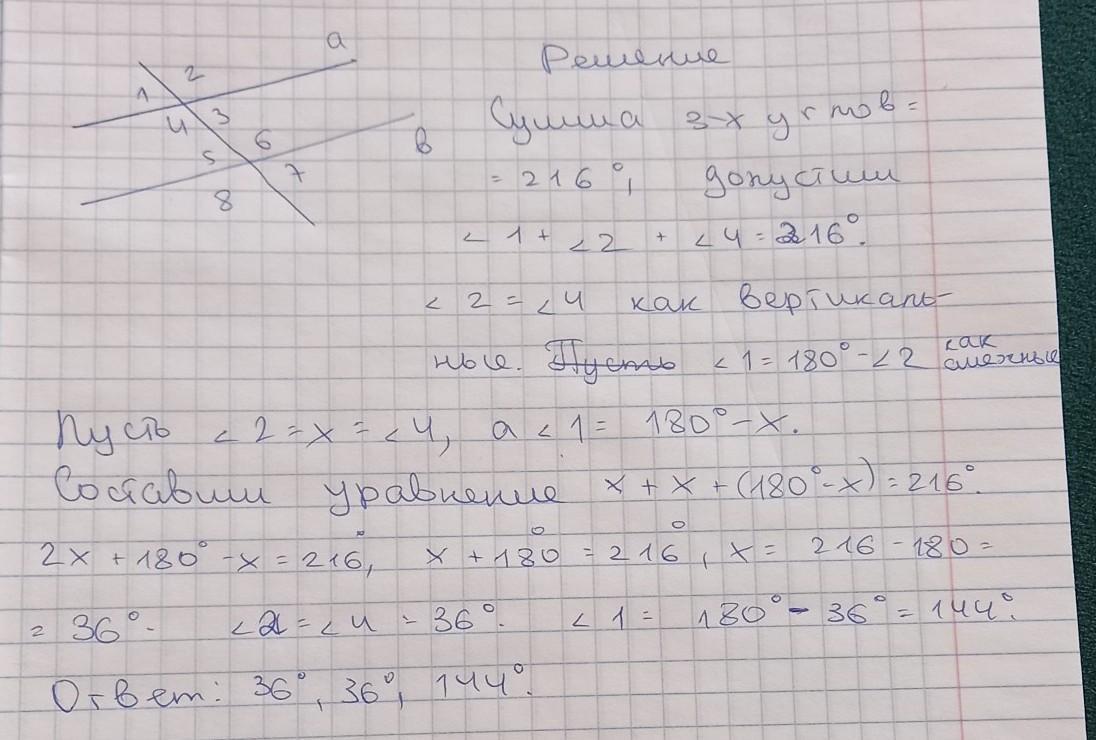 a
1 2
4 3
5 6
8 7
в
Решение
Сумма 3-х углов =
= 216°, допустим
∠1 + ∠2 + ∠4 = 216°.
∠2 = ∠4 как вертикаль-
ные. Пусть ∠1 = 180° - ∠2 как смежные
Пусть ∠2 = x = ∠4, а ∠1 = 180° - x.
Составим уравнение x + x + (180° - x) = 216°.
2x + 180° - x = 216°, x + 180° = 216°, x = 216 - 180 =
= 36°. ∠2 = ∠4 = 36°. ∠1 = 180° - 36° = 144°.
Ответ: 36°, 36°, 144°.